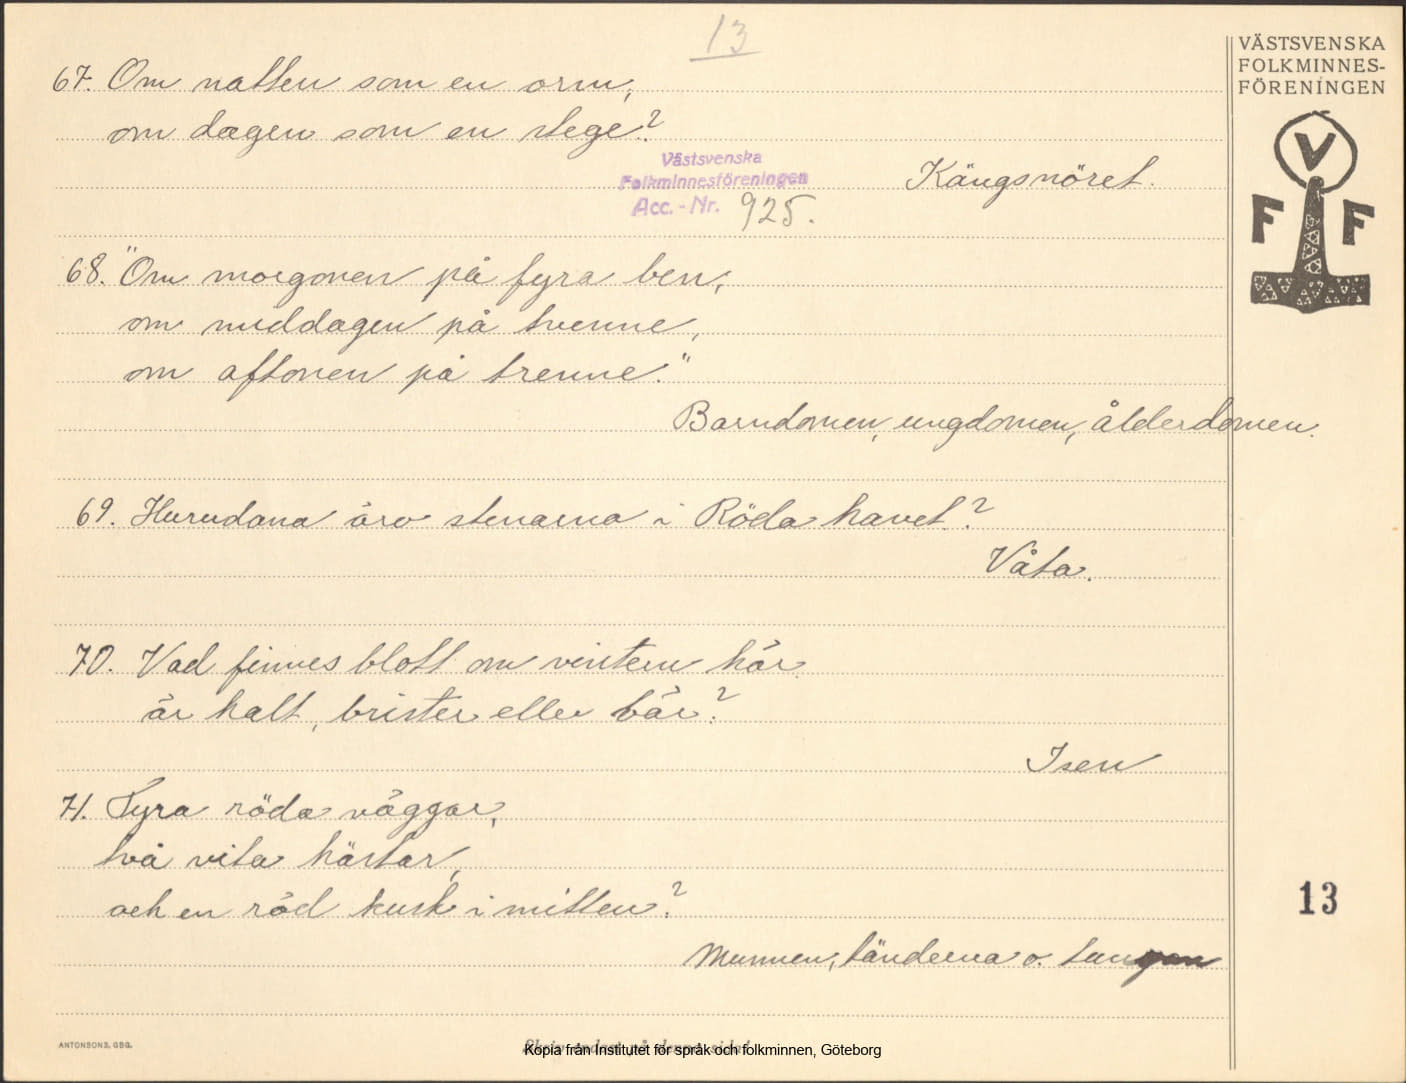 13
VÄSTSVENSKA
FOLKMINNES-
FÖRENINGEN
V
F F
67. Om natten som en orm,
om dagen som en stege?
Västsvenska
Folkminnesföreningen
Acc. - Nr. 925.
Kängsnöret.
68. "Om morgonen på fyra ben,
om middagen på tvenne,
om aftonen på trenne."
Barndomen, ungdomen, ålderdomen.
69. Hurudana äro stenarna i Röda havet?
Våta.
70. Vad finnes blott om vintern här
är halt, brister eller bär?
Isen
71. Fyra röda väggar,
två vita hästar,
och en röd kusk i mitten?
Munnen, tänderna o. tungan
13
ANTONSONS, GBG.
Skriv endast på denna sida!
Kopia från Institutet för språk och folkminnen, Göteborg